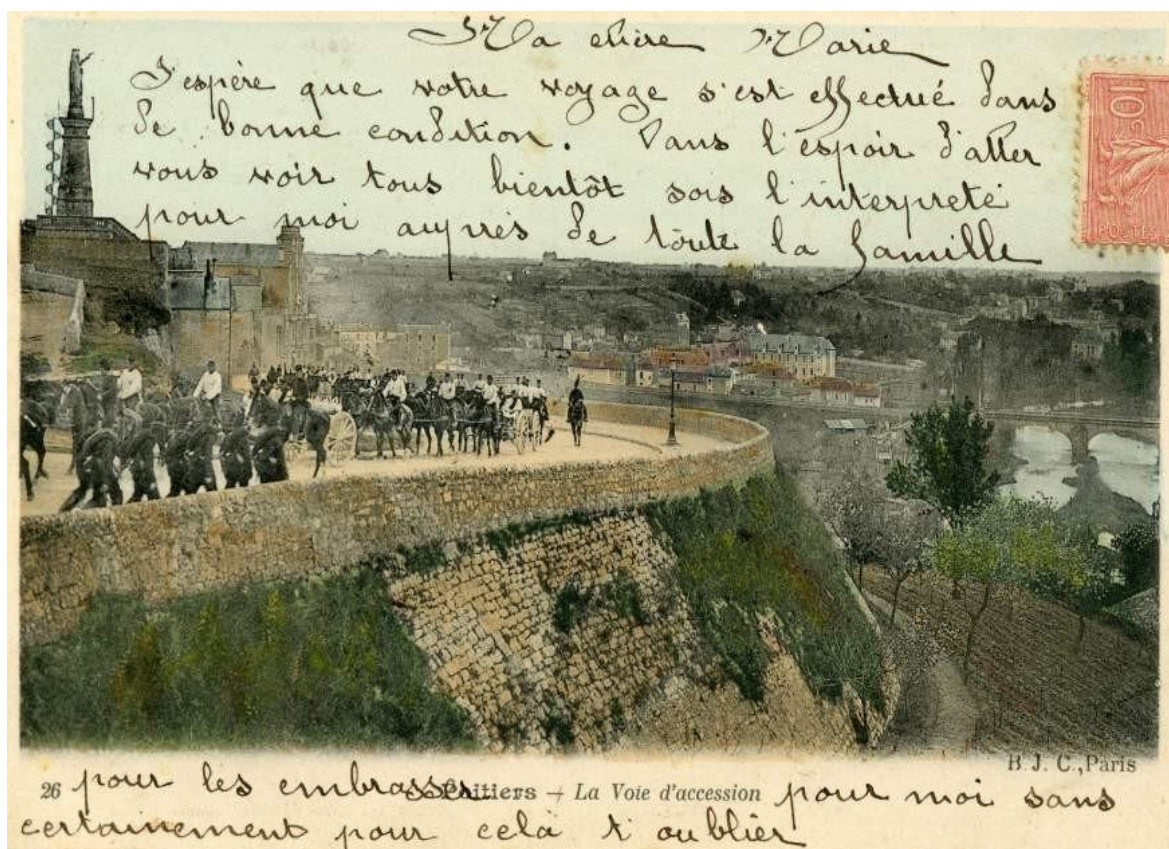 Ma chère Marie
J'espère que votre voyage s'est effectué dans
de bonne condition. Dans l'espoir d'aller
vous voir tous bientôt sois l'interpreté
pour moi auprès de toute la famille
10c
POSTES
B. J. C., Paris
26 Poitiers – La Voie d'accession
pour les embrasser pour moi sans
certainement pour celà t'oublier